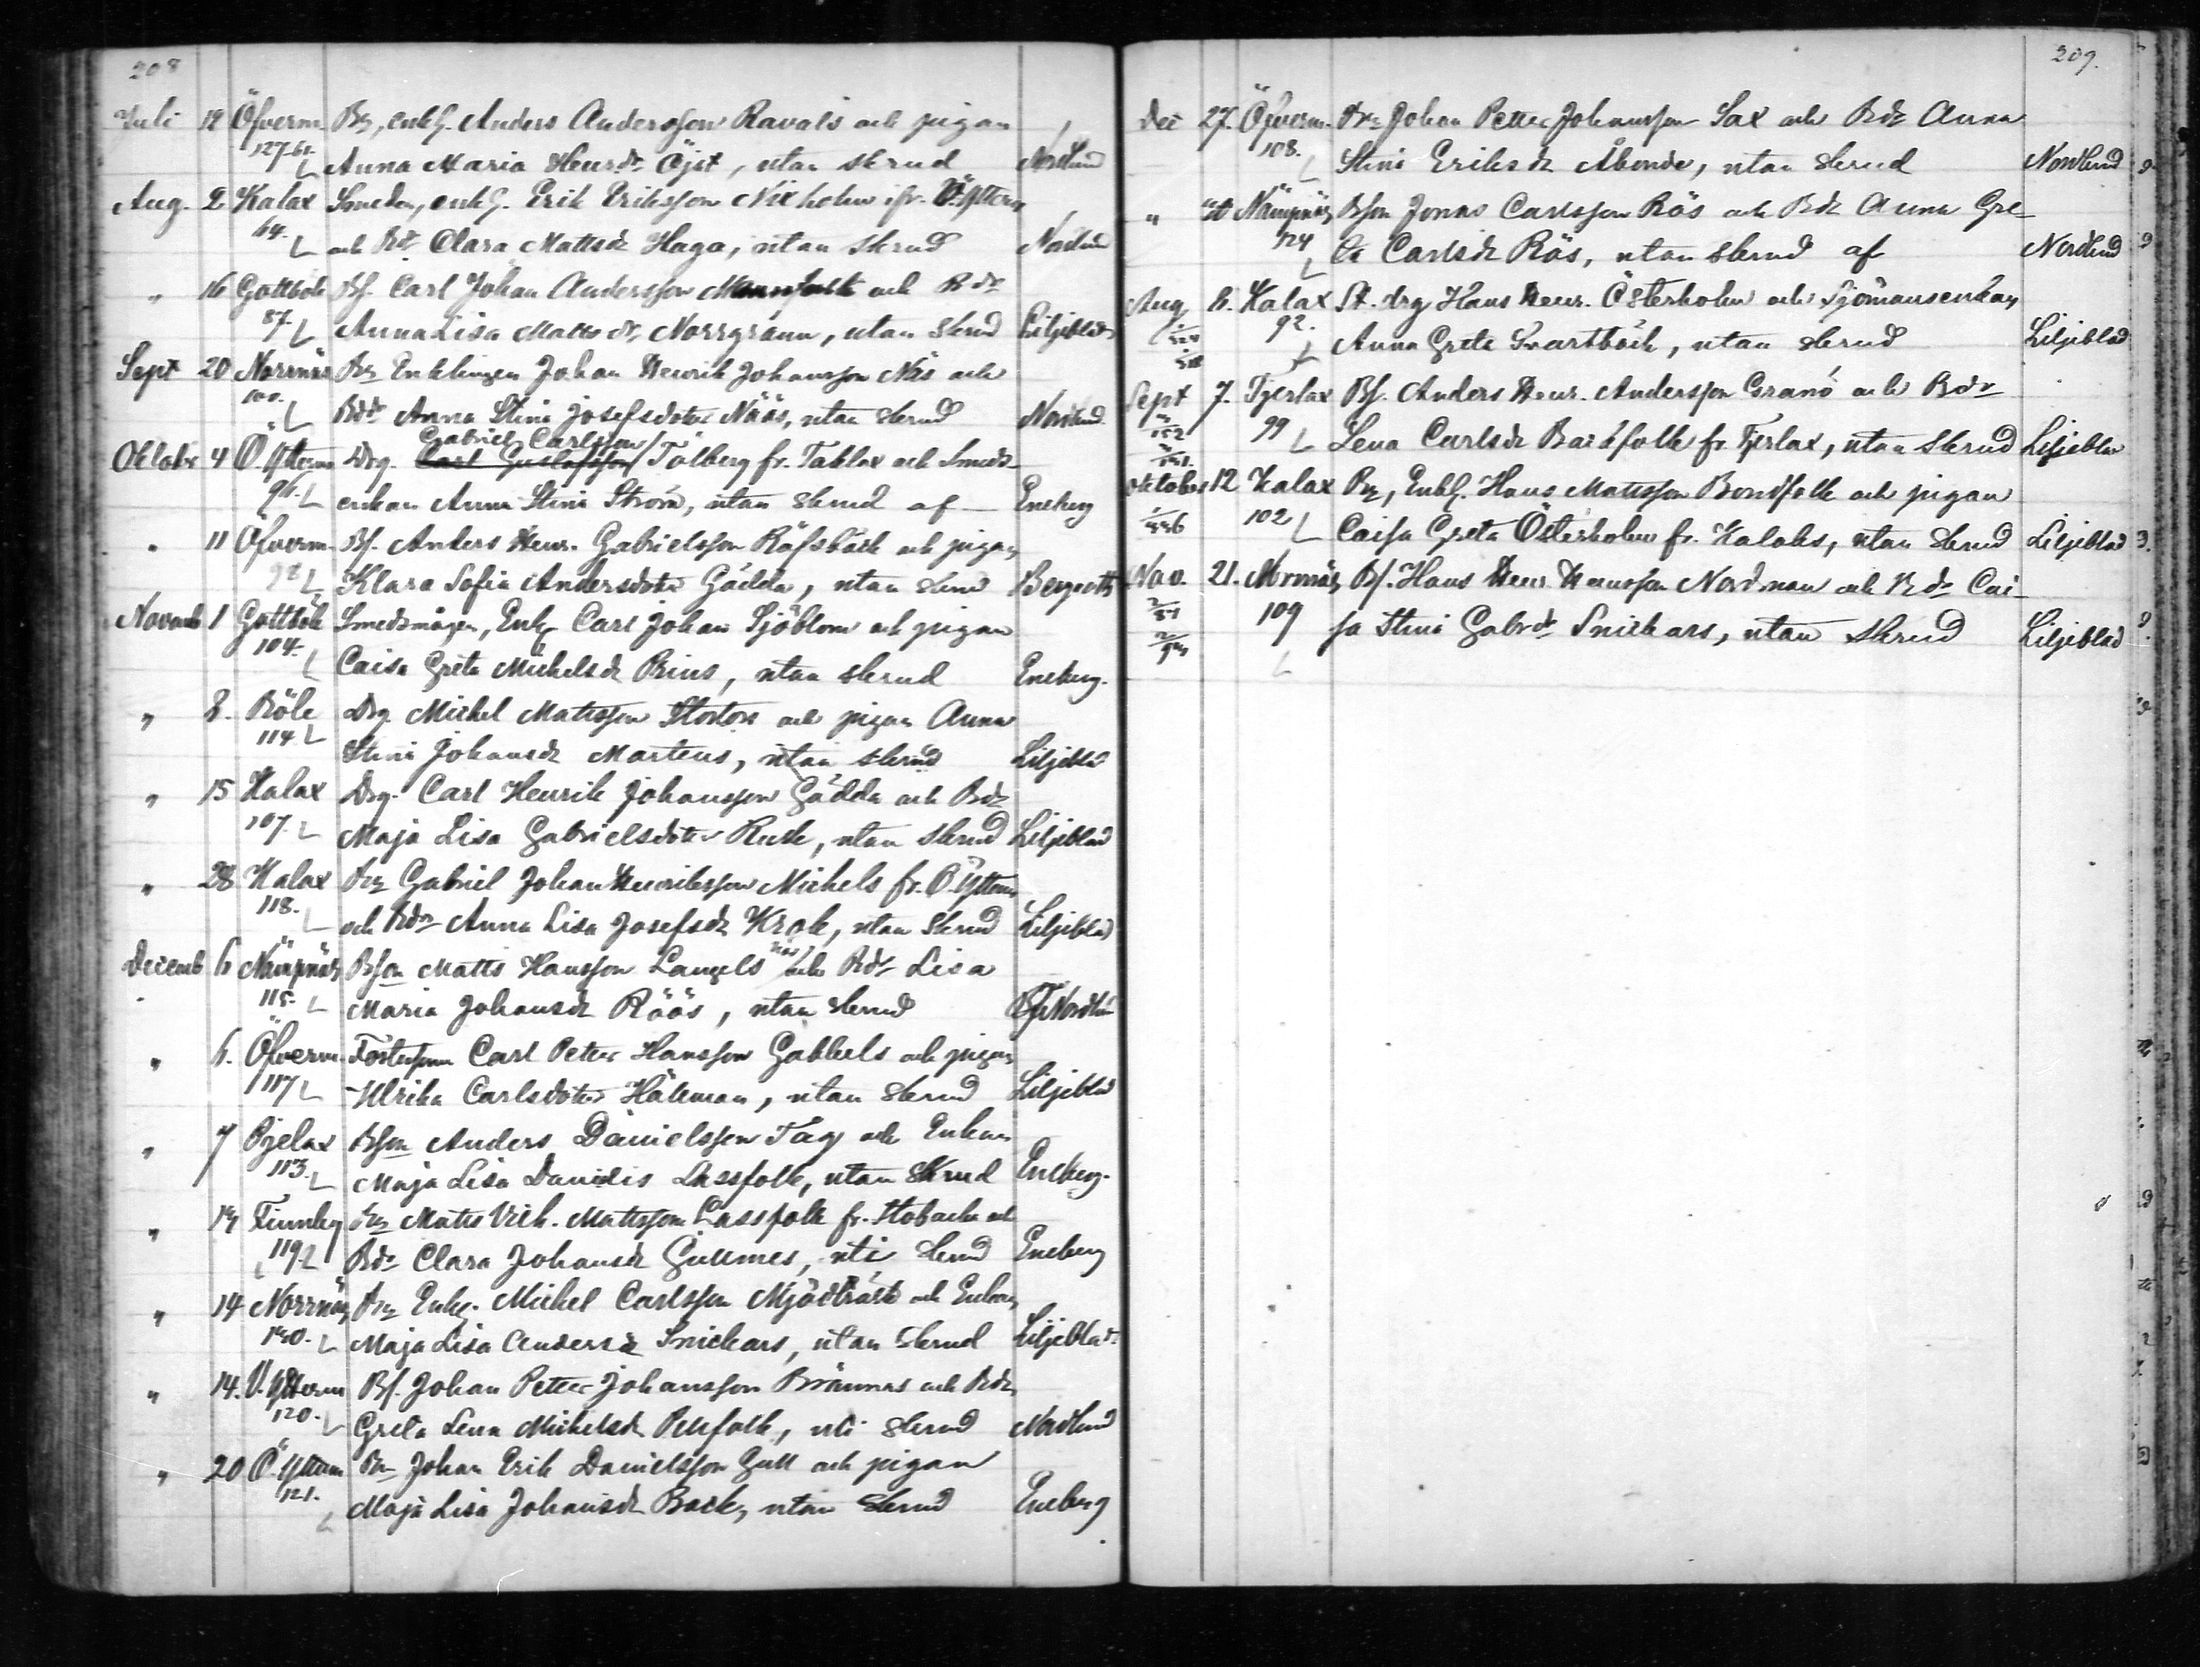 208
Juli 12 Öfverm. Bz, enkl. Anders Andersson Ravals och pigan
127.61. Anna Maria Henrsdr Öjst, utan skrud Nordlund
Aug. 2 Kalax Smeden, enkl. Erik Eriksson Nixholm ifr. Ö.Ytterm
64. och Bdr Clara Mattsdr Haga, utan skrud Nordlund
" 16 Gottböle Bf. Carl Johan Andersson och Bdr
87. Anna Lisa Mattsdr Norrgrann, utan skrud Liljeblad
Sept 20 Norrnäs Bz Enklingen Johan Henrik Johansson Näs och
100. Bdr Anna Stina Josefsdotter Nääs, utan skrud Nordlund
Gabriel Carlsson
Oktobr 4 Ö.Ytterm Drg. Carl Gustafsson Tålberg fr. Taklax och Smeds-
96. enkan Anna Stina Ström, utan skrud af Eneberg
" 11 Öfverm. Bf. Anders Henr. Gabrielsson Räfsbäck och pigan
98 Klara Sofia Andersdoter Gädda, utan skrud Bergroth
Novemb 1 Gottböle Smedsmågen, Enkl Carl Johan Sjöblom och pigan
104. Caisa Greta Michelsdr Prins, utan skrud Eneberg.
" 8. Böle Drg Michel Mattsson Stortors och pigan Anna
114. Stina Johansdr Martens, utan skrud Liljeblad
" 15 Kalax Drg. Carl Henrik Johansson Gädda och Bdr
107. Maja Lisa Gabrielsdoter Rusk, utan skrud Liljeblad
" 28 Kalax Bz Gabriel Johan Henriksson Michels fr. Ö.Ytterm
118. och Bdr Anna Lisa Josefsdr Krok, utan skrud Liljeblad
Decemb 6 Nämpnäs Bson Matts Hansson Langels och Bdr Lisa
115. Maria Johansdr Röös, utan skrud Nordlund
" 6. Öfverm. Fosterson Carl Peter Hansson Gabbels och pigan
117 Ulrika Carlsdoter Håkman, utan skrud Liljeblad
" 7 Pjelax Bson Anders Danielsson Tåg och Enkan
113. Maja Lisa Danielis Lassfolk, utan skrud Eneberg.
" 14 Finnby Bz Matts Vilh. Mattsson Lassfolk fr. Stobacka och
119. Bdr Clara Johansdr Gullmes, uti skrud Eneberg
" 14 Norrnäs Bz Enkl. Michel Carlsson Mjödträsk och Enkan
140. Maja Lisa Andersdr Snickars, utan skrud Liljeblad.
" 14. V.Ytterm Bf. Johan Petter Johansson Brännas och Bdr
120. Greta Lena Michelsdr Pellfolk, uti skrud Nordlund
" 20 Ö.Ytterm Bz Johan Erik Danielsson Gull och pigan
121. Maja Lisa Johansdr Back, utan skrud Eneberg
209.
Dec 27. Öfverm. Bz Johan Petter Johansson Sax och Bdr Anna
108. Stina Eriksdr Åbonde, utan skrud Nordlund
" 30 Nämpnäs Bson Jonas Carlsson Rös och Bdr Anna Gre-
124 ta Carlsdr Rös, utan skrud af Nordlund
Aug 6. Kalax St. drg Hans Henr. Österholm och Sjömansenkan
92. Anna Greta Svartbäck, utan skrud Liljeblad
Sept 7. Tjerlax Bf. Anders Henr. Andersson Granö och Bdr
99 Lena Carlsdr Backfolk fr. Tjerlax, utan skrud Liljeblad
Oktober 12 Kalax Bz, Enkl. Hans Mattsson Bondfolk och pigan
102 Caisa Greta Österholm fr. Kalaks, utan skrud Liljeblad
Nov. 21. Norrnäs Bf. Hans Henr Hansson Nordman och Bdr Cai-
109 sa Stina Gabrdr Snickars, utan skrud Liljeblad